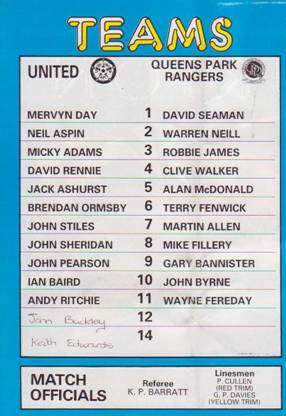 TEAMS
UNITED QUEENS PARK RANGERS
MERVYN DAY 1 DAVID SEAMAN
NEIL ASPIN 2 WARREN NEILL
MICKY ADAMS 3 ROBBIE JAMES
DAVID RENNIE 4 CLIVE WALKER
JACK ASHURST 5 ALAN McDONALD
BRENDAN ORMSBY 6 TERRY FENWICK
JOHN STILES 7 MARTIN ALLEN
JOHN SHERIDAN 8 MIKE FILLERY
JOHN PEARSON 9 GARY BANNISTER
IAN BAIRD 10 JOHN BYRNE
ANDY RITCHIE 11 WAYNE FEREDAY
John Buckley 12
Keith Edwards 14
MATCH OFFICIALS
Referee
K. P. BARRATT
Linesmen
P. CULLEN
(RED TRIM)
G. P. DAVIES
(YELLOW TRIM)